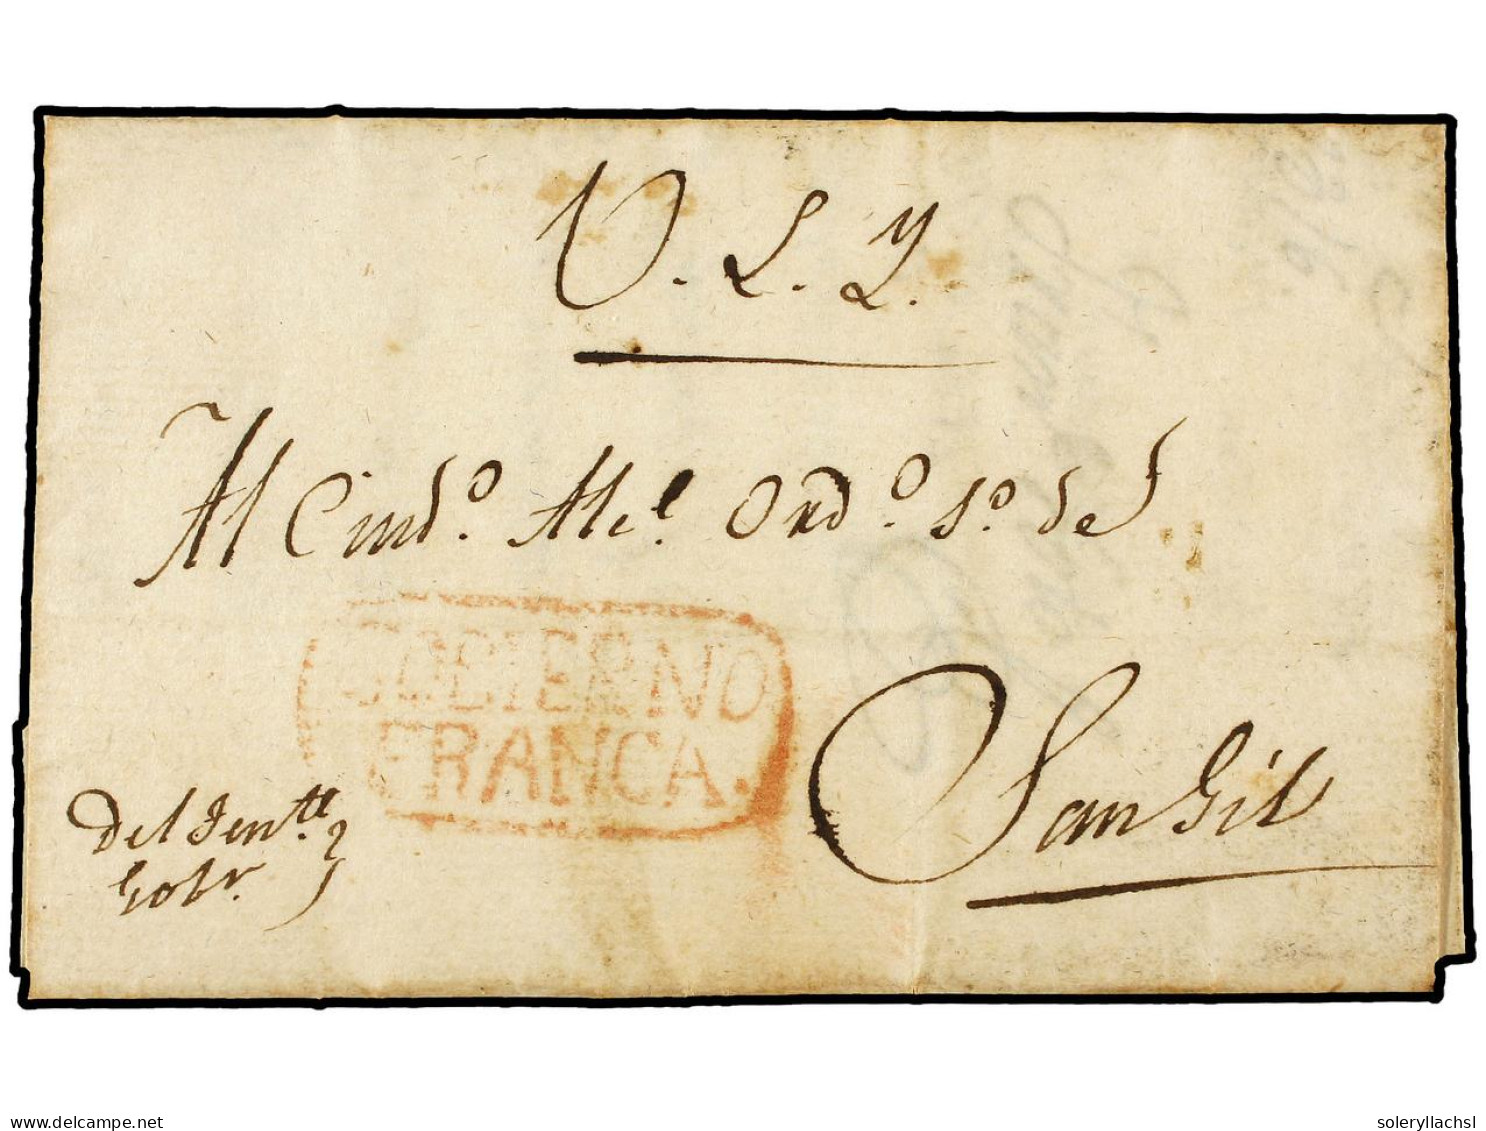 V. L. Y.
Al Ciud.º Alc.e Ord.º 1.º de
GOBIERNO
FRANCA.
San Gil
Del
Gobr.
delcampe.net
soleryllachsl